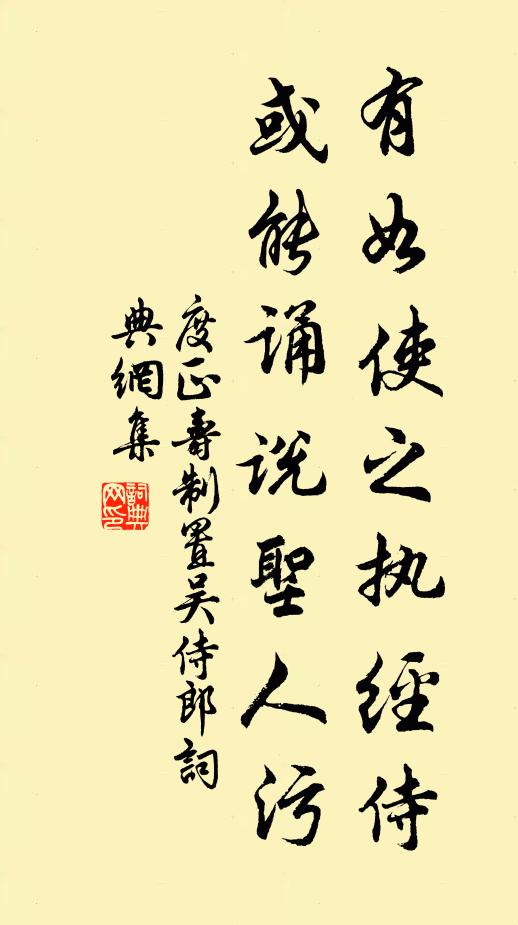 有如使之执經侍
或能誦説聖人污
度正壽制置吴侍郎詞
典網集
詞典
网印